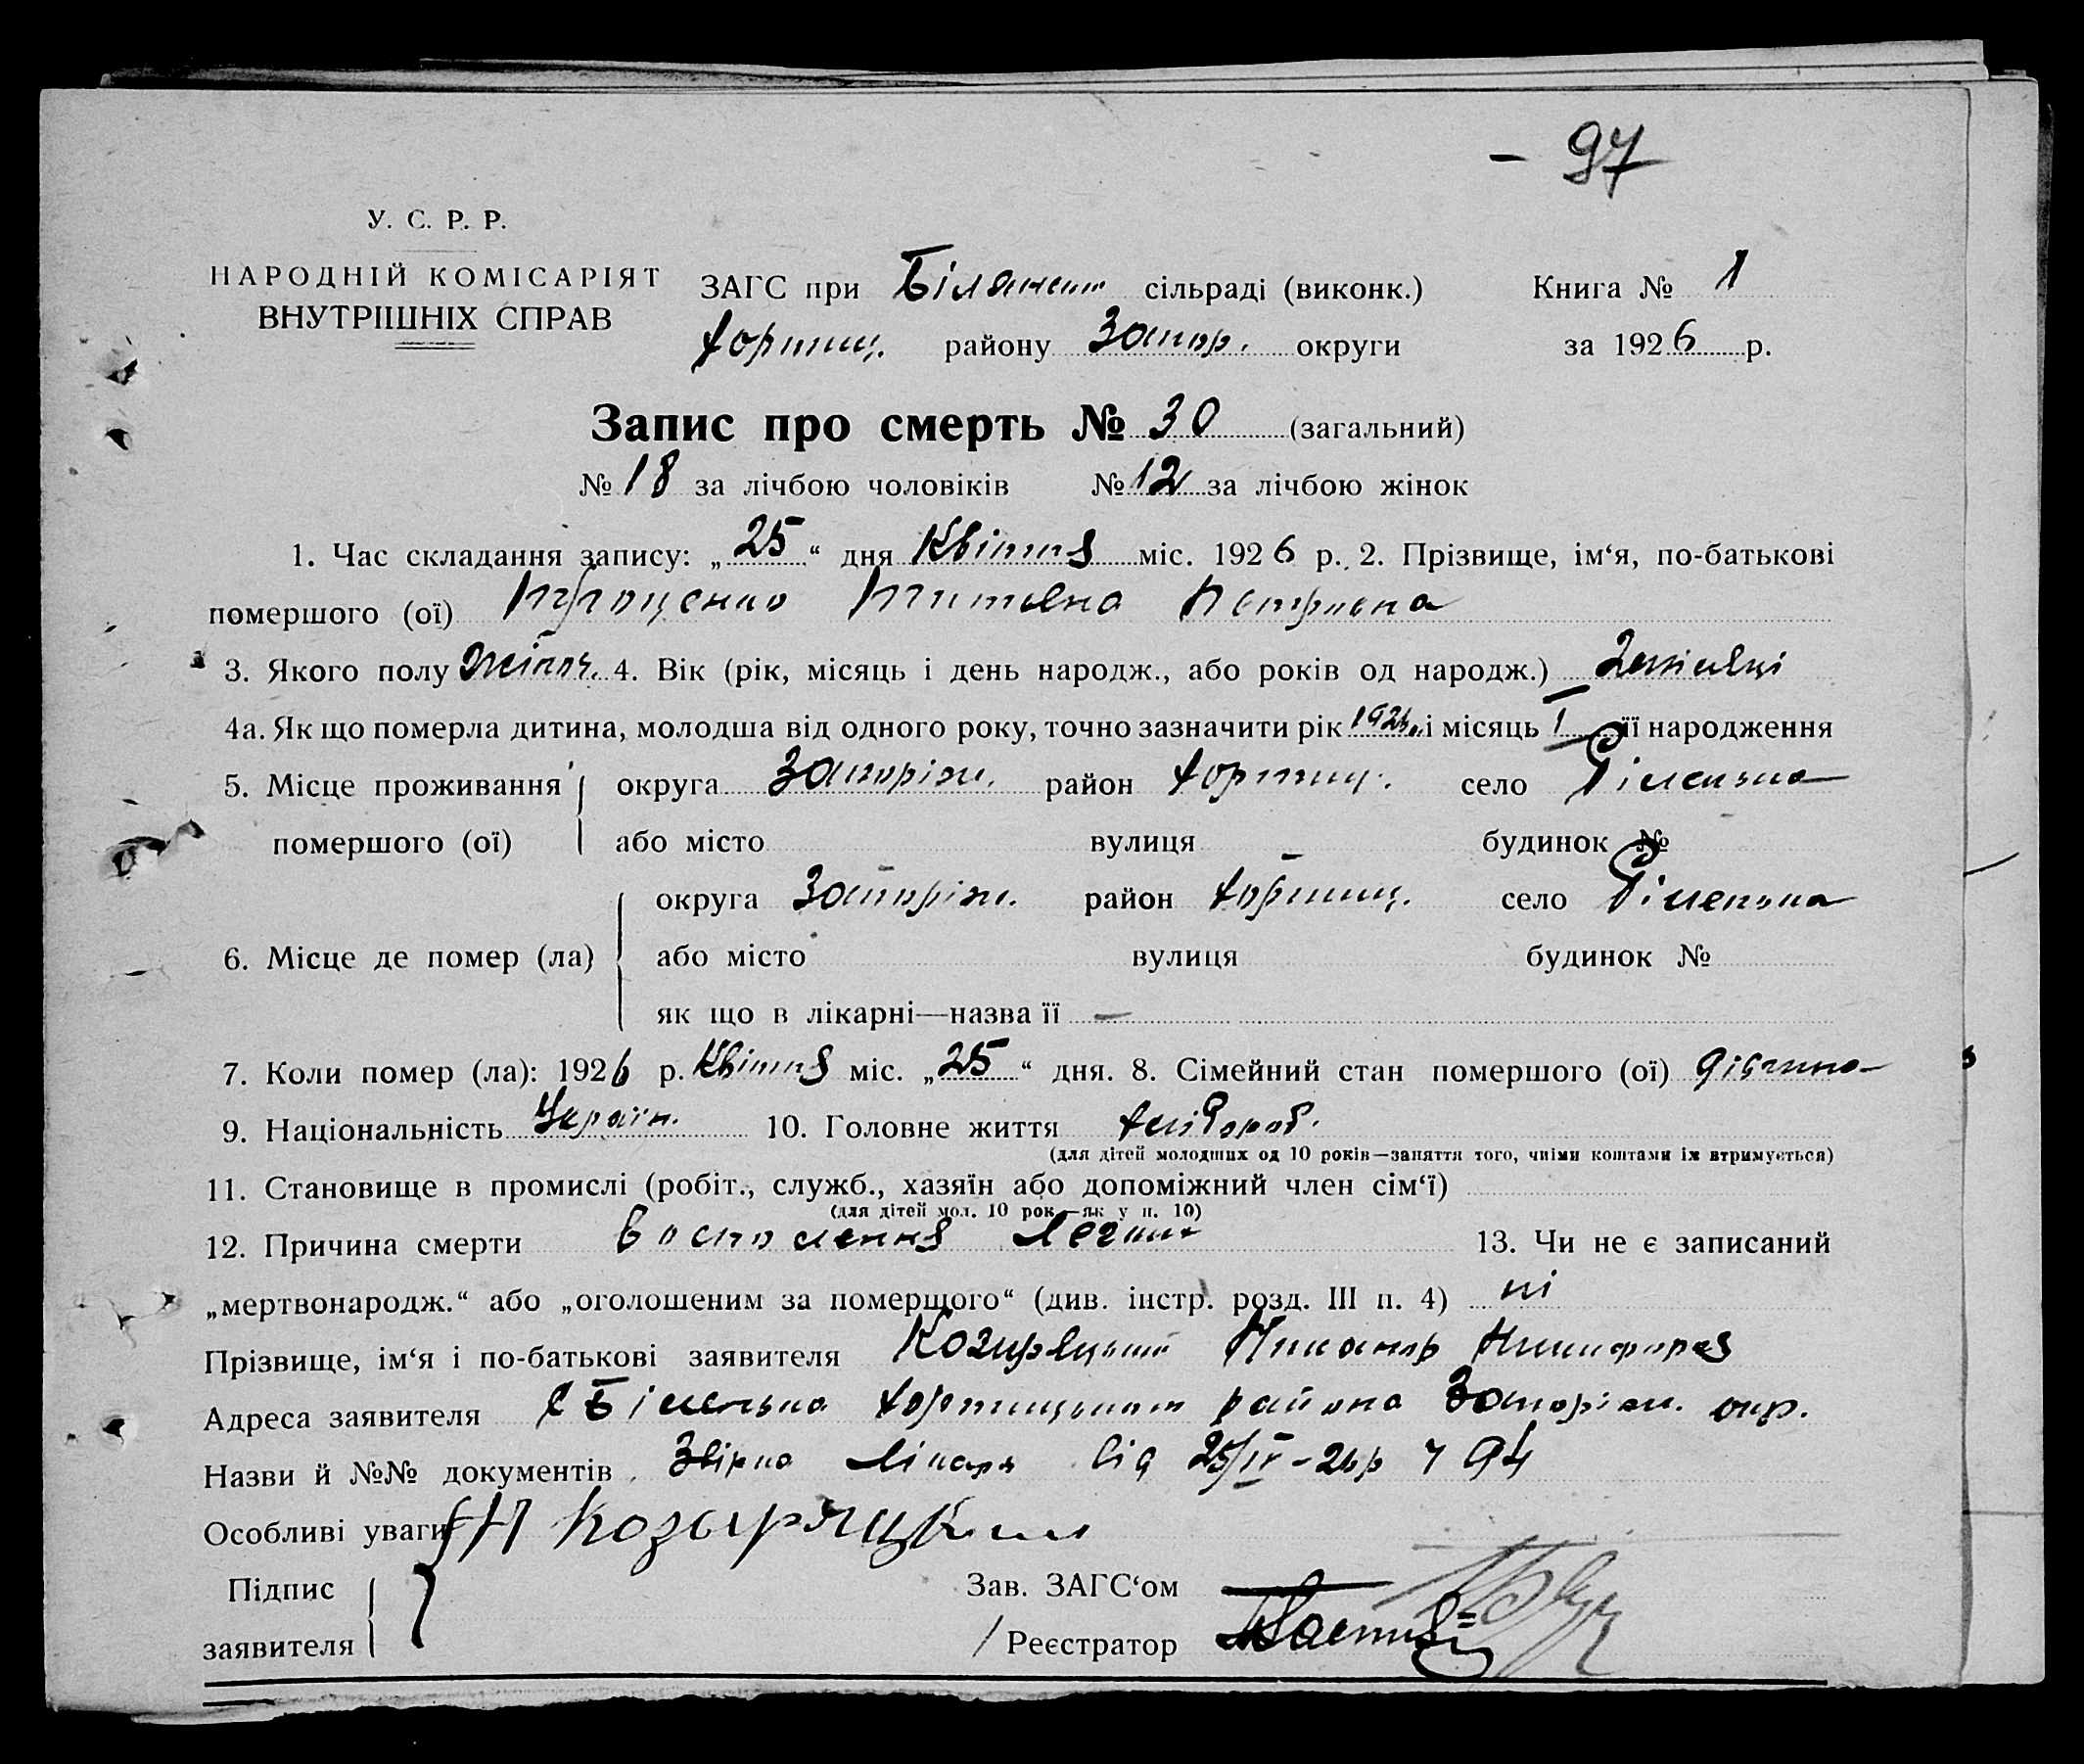 – 97
У. С. Р. Р.
НАРОДНІЙ КОМІСАРІЯТ
ВНУТРІШНІХ СПРАВ
ЗАГС при сільраді (виконк.) Книга № 1
Хортиц. району Запор. округи за 1926 р.
Запис про смерть № 30 (загальний)
№ 18 за лічбою чоловіків № 12 за лічбою жінок
1. Час складання запису: „25“ дня Квітня міс. 1926 р. 2. Прізвище, ім‘я, по-батькові
помершого (ої) Петровна
3. Якого полу жіноч. 4. Вік (рік, місяць і день народж., або років од народж.) 2 місяці
4а. Як що померла дитина, молодша від одного року, точно зазначити рік 1926 і місяць І її народження
5. Місце проживання округа Запоріж. район Хортиц. село
помершого (ої) або місто вулиця будинок №
округа Запоріж. район Хортиц. село
6. Місце де помер (ла) або місто вулиця будинок №
як що в лікарні—назва її —
7. Коли помер (ла): 1926 р. Квітня міс. „25“ дня. 8. Сімейний стан помершого (ої) дівчина
9. Національність Україн. 10. Головне життя хлібороб.
(для дітей молодших од 10 років—заняття того, чиїми коштами їх втримується)
11. Становище в промислі (робіт., служб., хазяїн або допоміжний член сім‘ї)
(для дітей мол. 10 рок.—як у п. 10)
12. Причина смерти воспалення легких 13. Чи не є записаний
„мертвонародж.“ або „оголошеним за померщого“ (див. інстр. розд. III п. 4) ні
Прізвище, ім‘я і по-батькові заявителя Козиряцький Никанор
Адреса заявителя с района Запоріж. окр.
Назви й №№ документів лікаря від 25/IV–26р ч 94
Особливі уваги Н Козыряцкий
Підпис Зав. ЗАГС‘ом
заявителя / Реєстратор